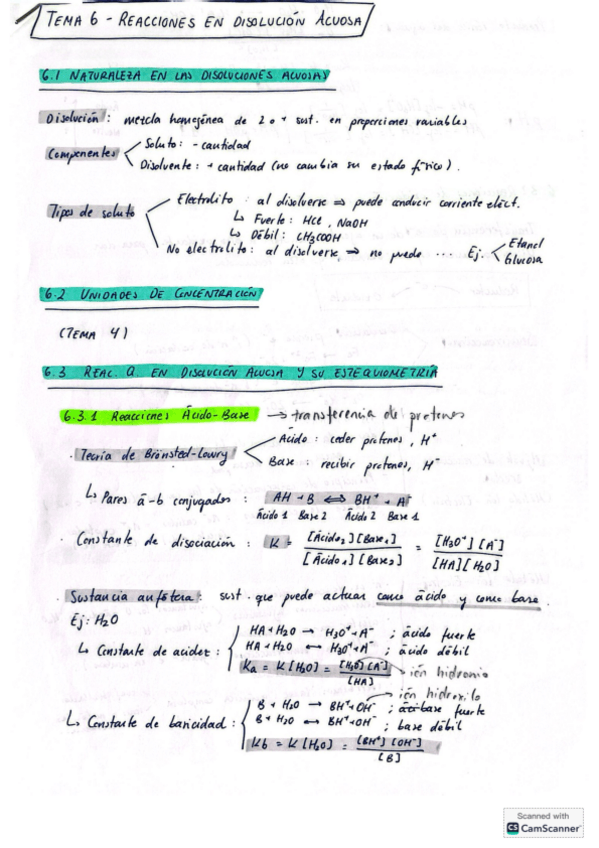 TEMA 6 - REACCIONES EN DISOLUCIÓN ACUOSA
6.1 NATURALEZA EN LAS DISOLUCIONES ACUOSAS
Disolución: mezcla homogénea de 2 o + sust. en proporciones variables
Componentes
Soluto: - cantidad
Disolvente: + cantidad (no cambia su estado físico).
Tipos de soluto
Electrolito: al disolverse ⇒ puede conducir corriente eléct.
↳ Fuerte: HCl, NaOH
↳ Débil: CH3COOH
No electrolito: al disolverse → no puede ... Ej. Etanol
Glucosa
6.2 UNIDADES DE CONCENTRACIÓN
(TEMA 4)
6.3 REAC. Q EN DISOLUCIÓN ACUOSA Y SU ESTEQUIOMETRIA
6.3.1 Reacciones Ácido-Base → transferencia de protones
· Teoría de Brönsted-Lowry
Ácido: ceder protones, H+
Base: recibir protones, H-
↳ Pares á-b conjugados: AH + B ⇔ BH+ + A-
Ácido 1 Base 2 Ácido 2 Base 1
· Constante de disociación: K = [Ácido2][Base1] / [Ácido1][Base2] = [H3O+][A-] / [HA][H2O]
· Sustancia anfótera: sust. que puede actuar como ácido y como base.
Ej: H2O
↳ Constante de acidez:
HA + H2O → H3O+ + A- ; ácido fuerte
HA + H2O ↔ H3O+ + A- ; ácido débil
Ka = K[H2O] = [H3O][A-] / [HA] → ión hidronio
→ ión hidroxilo
↳ Constante de basicidad:
B + H2O → BH+ + OH- ; base fuerte
B + H2O ↔ BH+ + OH- ; base débil
Kb = K[H2O] = [BH+][OH-] / [B]
Scanned with
CS CamScanner